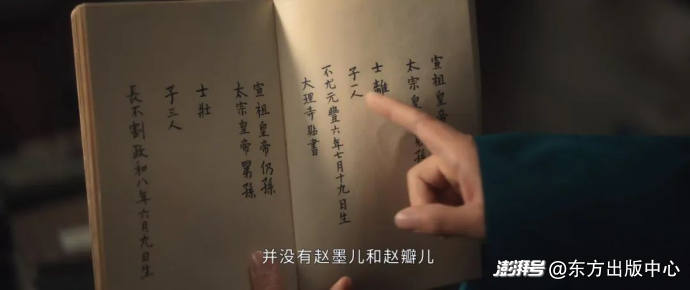 宣祖皇帝
太宗皇
孫
士離
子一人
不尤元豐六年七月十九日生
大理寺點書
宣祖皇帝仍孫
太宗皇帝晜孫
士壯
子三人
長不劉政和八年六月九日生
并没有赵墨儿和赵瓣儿
澎湃号@东方出版中心